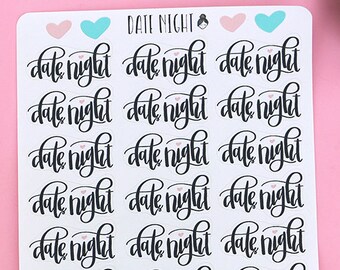 DATE NIGHT
date night date night date night
date night date night date night
date night date night date night
date night date night date night
date night date night date night